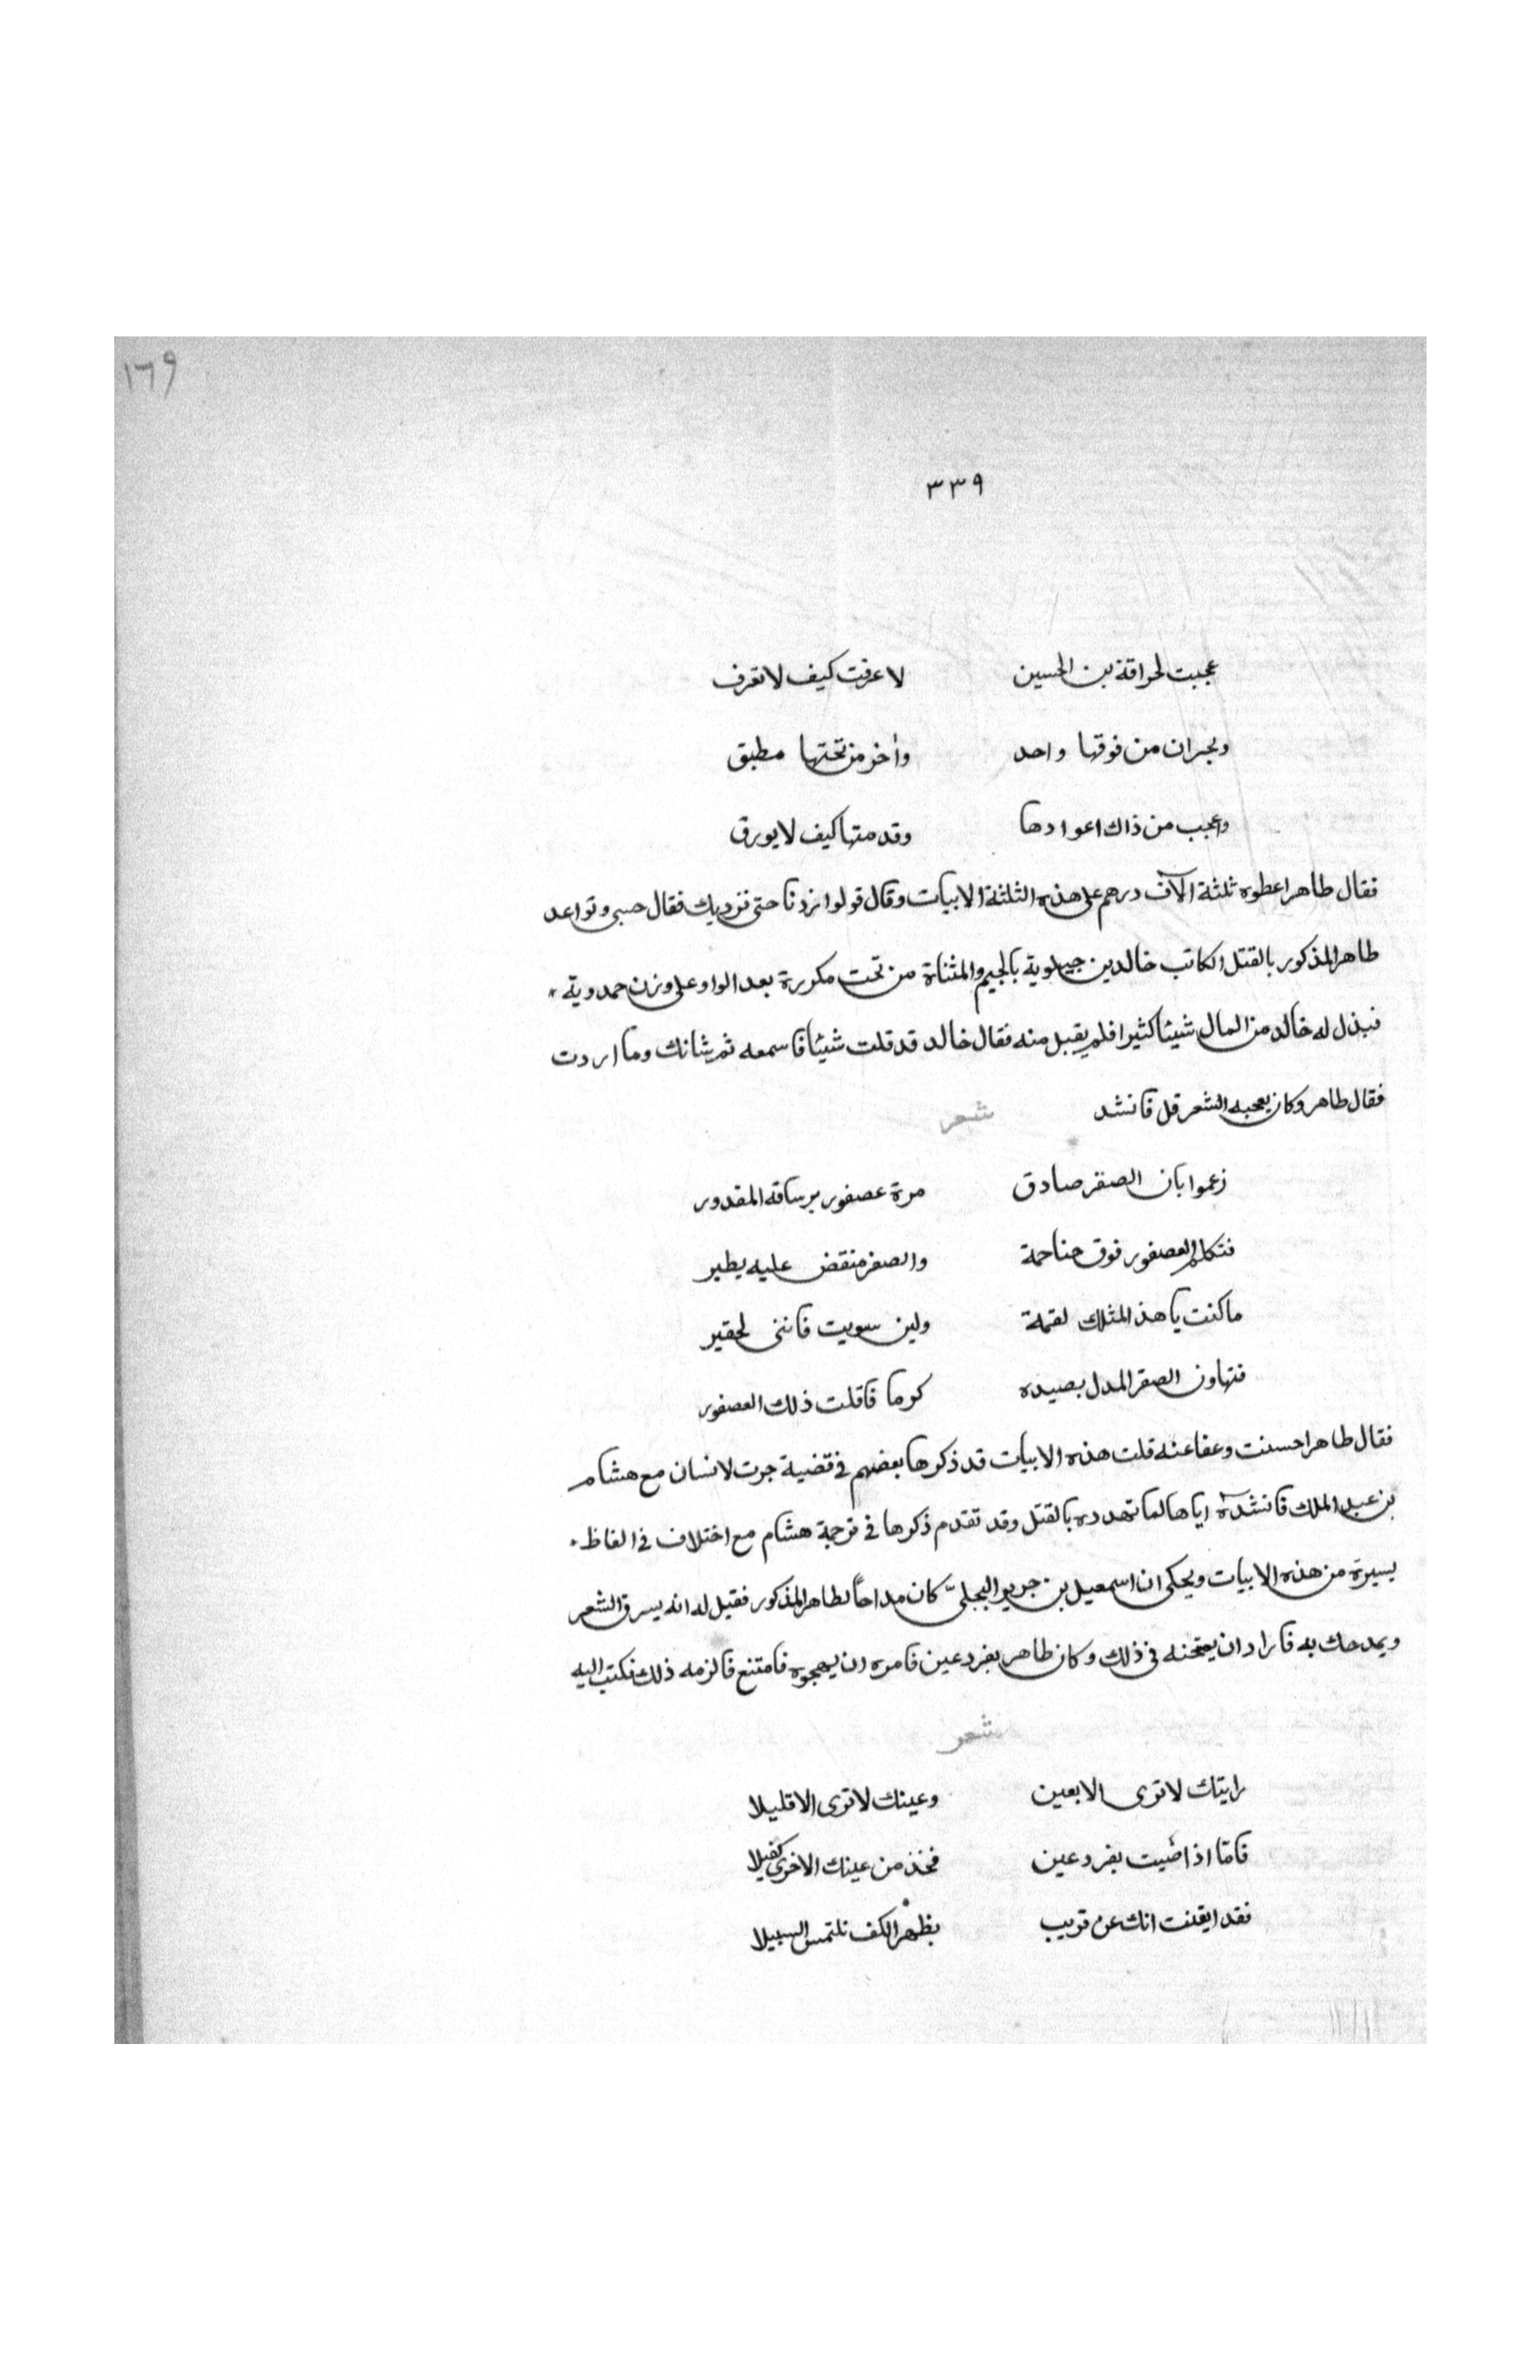 ١٦٩
٣٣٩
عجبت لحراقة بن الحسين لا عرفت كيف لا تغرف
وبحران من فوقها واحد وأخر من تحتها مطبق
واعجب من ذاك اعوادها وقد متها كيف لا يورق
فقال طاهر اعطوه ثلثة الآف درهم على هذه الثلثة الابيات وقال قولوا زدنا حتى نزديك فقال حسبى وتواعد
طاهر المذكور بالقتل الكاتب خالد بن جيلوية بالجيم والمثناة من تحت مكررة بعد الواو على وزن حمدوية
فبذل له خالد من المال شيئا كثيرا فلم يقبل منه فقال خالد قد قلت شيئا فاسمعه ثم شانك وما اردت
فقال طاهر وكان يعجبه الشعر قل فانشد شعر
زعموا بان الصقر صادق مرة عصفور بر ساقه المقدور
فتكلم العصفور فوق جناحة والصقر منقض عليه يطير
ما كنت يا هذا لمثلك لقمة ولين سويت فاننى لحقير
فتهاون الصقر المدل بصيده كرما فاقلت ذلك العصفور
فقال طاهر احسنت وعفا عنه قلت هذه الابيات قد ذكرها بعضهم فى قضية جرت لانسان مع هشام
بن عبد الملك فانشده اياها لما تهدده بالقتل وقد تقدم ذكرها فى ترجمة هشام مع اختلاف فى الفاظ
يسيرة من هذه الابيات ويحكى ان اسمعيل بن جرير البجلىّ كان مداحاً لطاهر المذكور فقيل له انه يسرق الشعر
ويمدحك به فاراد ان يمتحنه فى ذلك وكان طاهر بفرد عين فامره ان يهجوه فامتنع فالزمه ذلك فكتب اليه
شعر
رايتك لا ترى الا بعين وعينك لا ترى الا قليلا
فامّا اذ اصبت بفرد عين فخذ من عينك الاخرى كفيلا
فقد ايقنت انك عن قريب بظهر الكف تلتمس السبيلا